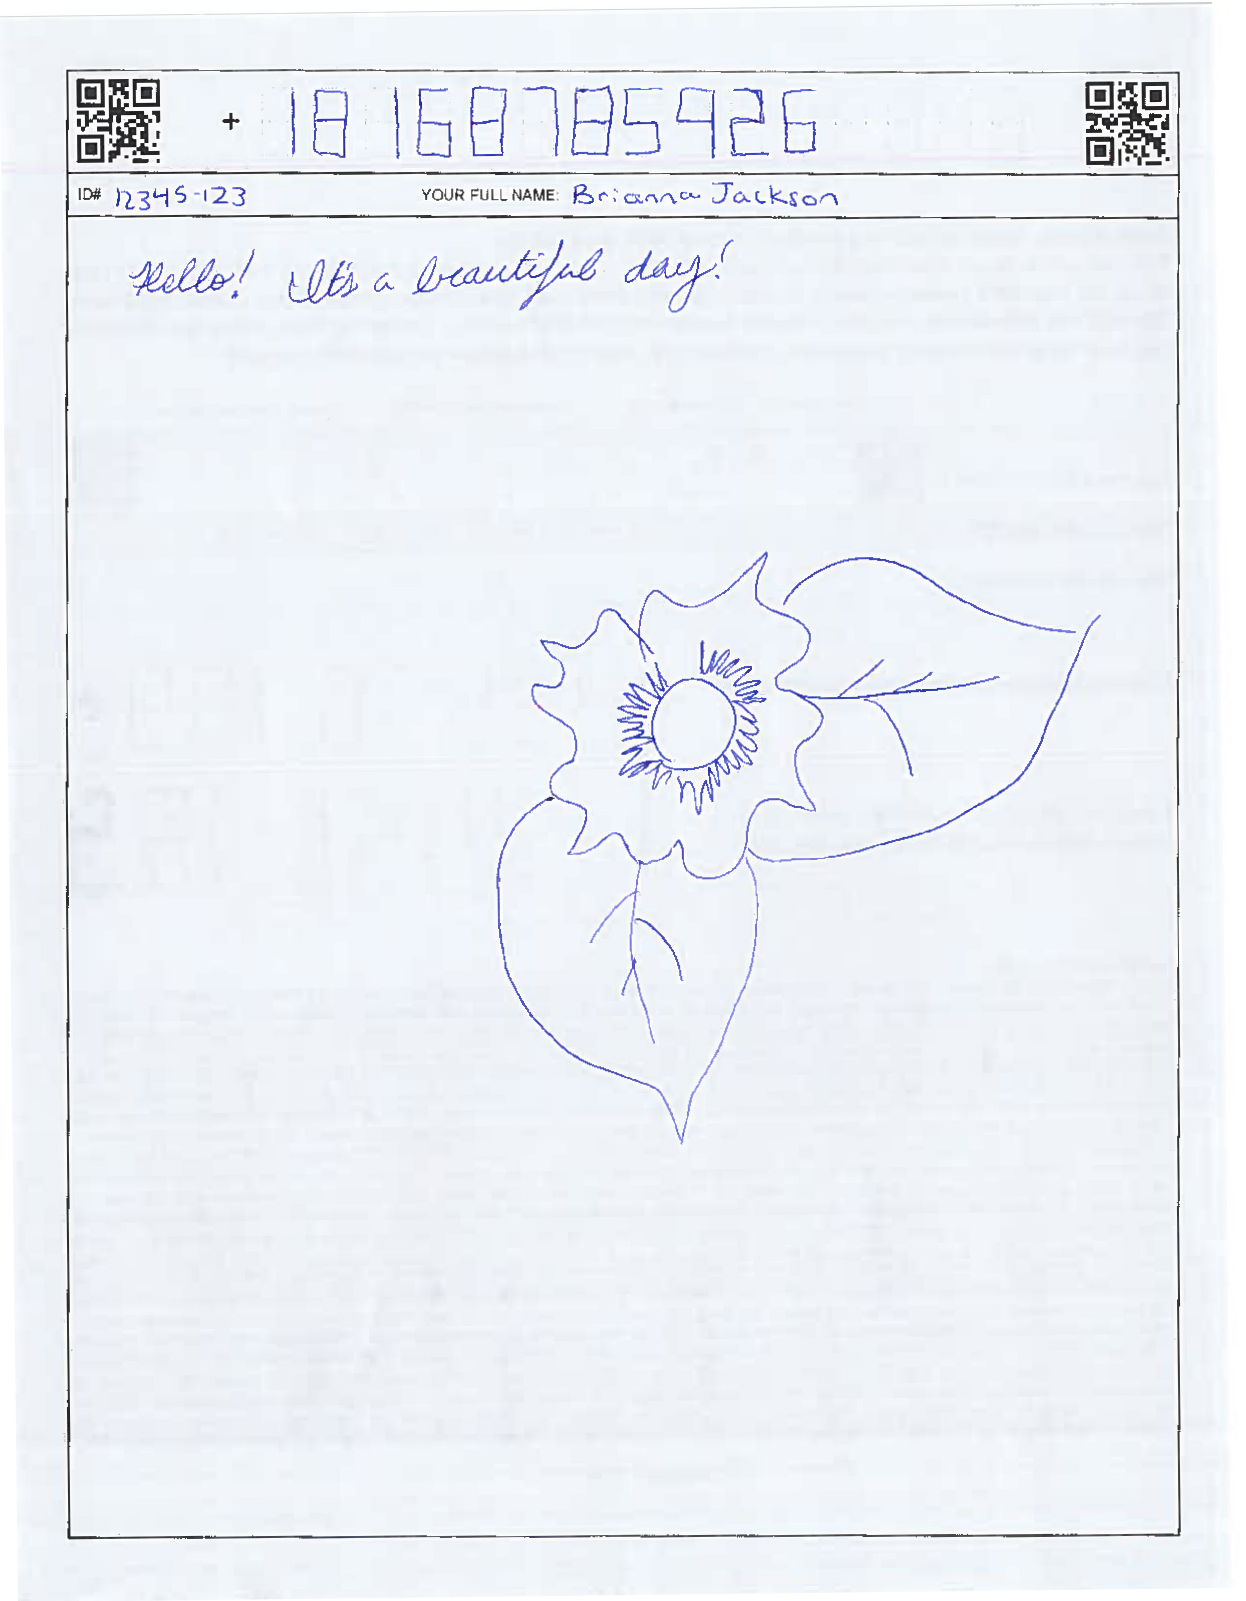 + 18168785426
ID# 12345-123 YOUR FULL NAME: Brianna Jackson
Hello! It's a beautiful day!